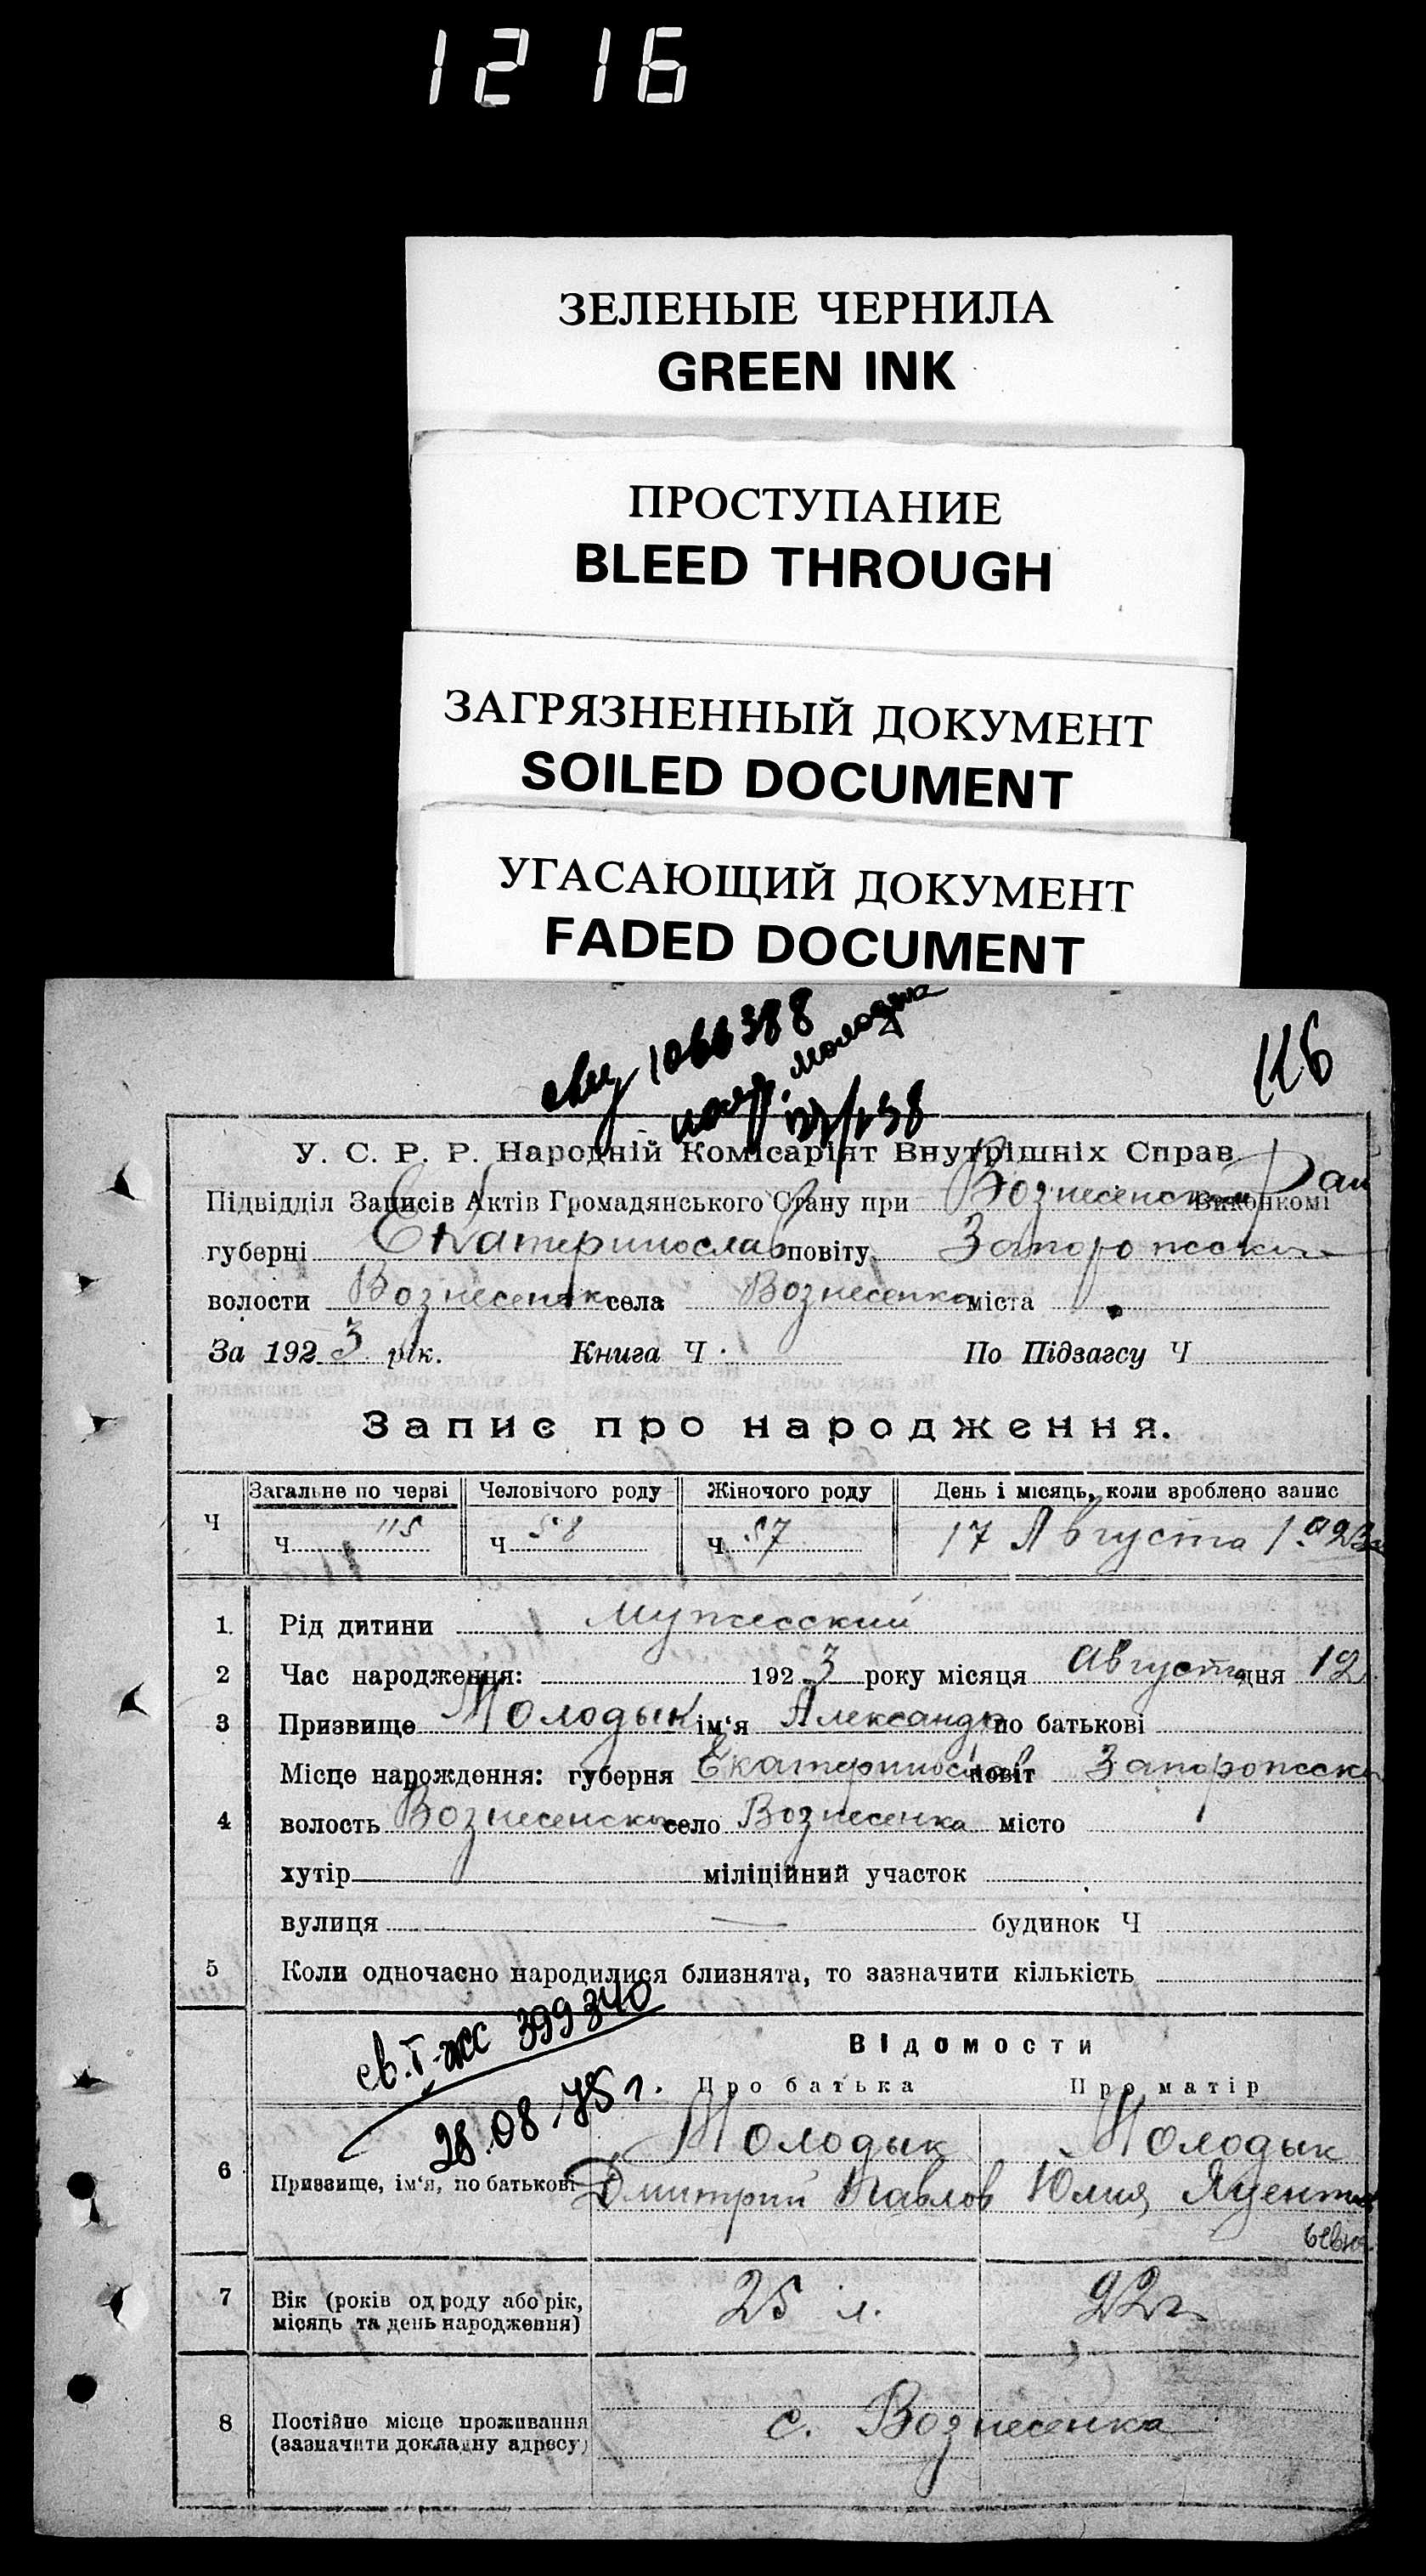 1216
ЗЕЛЕНЫЕ ЧЕРНИЛА
GREEN INK
ПРОСТУПАНИЕ
BLEED THROUGH
ЗАГРЯЗНЕННЫЙ ДОКУМЕНТ
SOILED DOCUMENT
УГАСАЮЩИЙ ДОКУМЕНТ
FADED DOCUMENT
116
У. С. Р. Р. Народній Комісаріят Внутрішніх Справ.
Підвідділ Записів Актів Громадянського Стану при Вознесенском Рай Виконкомі
губерні Екатеринослав повіту Запорожски
волости Вознесенск села Вознесенка міста
За 1923 рік. Книга Ч. По Підзагсу Ч
Запис про народження.
Загальне по черзі Человічого роду Жіночого роду День і місяць, коли зроблено запис
Ч Ч 115 Ч 58 Ч 57 17 Августа 1923
1. Рід дитини Мужеский
2 Час народження: 1923 року місяця Августа дня 12
3 Призвище Молодык ім'я Александр по батькові
Місце нарождення: губерня Екатеринослав повіт Запорожски
4 волость Вознесенска село Вознесенка місто
хутір міліційний участок
вулиця — будинок Ч
5 Коли одночасно народилися близнята, то зазначити кількість
св. I-жс 399340
28.08.75 г.
Відомости
Про батька Про матір
6 Призвище, ім'я, по батькові
Молодык Молодык
Дмитрий Павлов Юлия
7 Вік (років од роду або рік, місяць та день народження) 25 л. 22 г
8 Постійне місце проживання (зазначити докладну адресу) с. Вознесенка